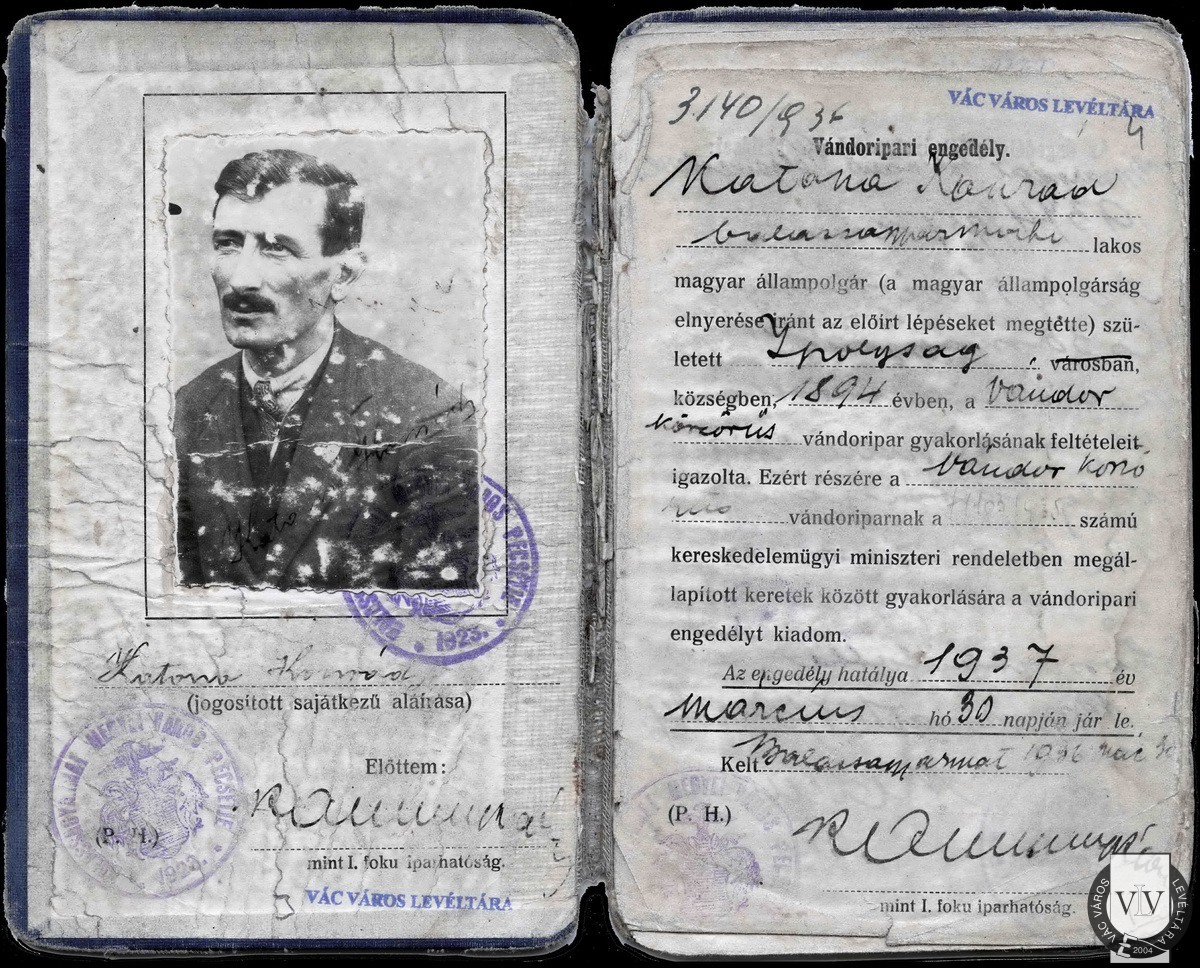 Katona Konrád
(jogosított sajátkezű aláírása)
Előttem:
(P. H.)
mint I. foku iparhatóság.
VÁC VÁROS LEVÉLTÁRA
1923.
VÁC VÁROS LEVÉLTÁRA
3140/936
4
Vándoripari engedély.
Katona Konrád
balassagyarmathi lakos
magyar állampolgár (a magyar állampolgárság
elnyerése iránt az előirt lépéseket megtette) szü-
letett Ipolyság városban,
községben, 1894 évben, a vándor
köszörűs vándoripar gyakorlásának feltételeit
igazolta. Ezért részére a vándor köszö
rűs vándoriparnak a számú
kereskedelemügyi miniszteri rendeletben megál-
lapított keretek között gyakorlására a vándoripari
engedélyt kiadom.
Az engedély hatálya 1937 év
március hó 30 napján jár le.
Kelt Balassagyarmat 1936 30
(P. H.)
mint I. foku iparhatóság.
VÁC VÁROS LEVÉLTÁRA
VLV
2004